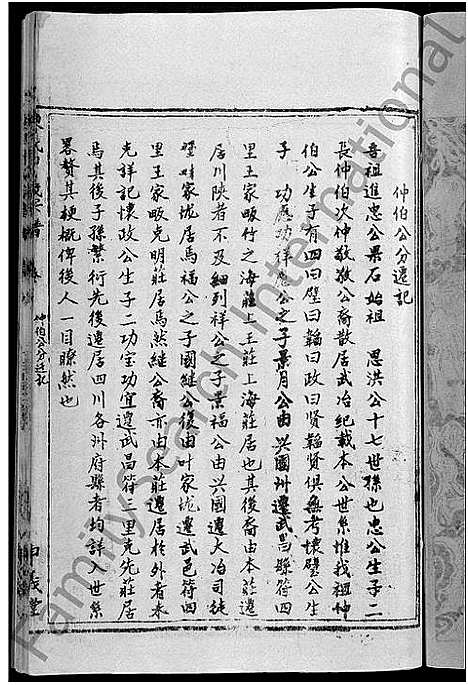 仲伯公分遷記
吾祖進忠公果石始祖 恩洪公十七世孫也忠公生子二
長仲伯次仲敬敬公裔散居武冶紀載本公世系惟我祖仲
伯公生子有四曰璧曰韜曰政曰賢韜賢俱無考懷璧公生
子 功應功祥應公之子景月公由興國州遷武昌縣符四
里王家畈竹之海莊上王莊上海莊居也其後裔由本莊遷
居川陝者不及細列祥公之子景福公由興國遷大冶司徒
家垅居焉福公之子國繼公復由叶家垅遷武邑符四
里王家畈克明莊居焉然繼公裔亦由本莊遷居於外者未
克詳記懷政公生子二功宝功宜遷武昌符二里克先莊居
焉其後子孫繁衍先後遷居四川各州府縣者均詳入世系
畧贅其梗概俾後人一目瞭然也
仲伯公分迁記
申義堂
FamilySearch International